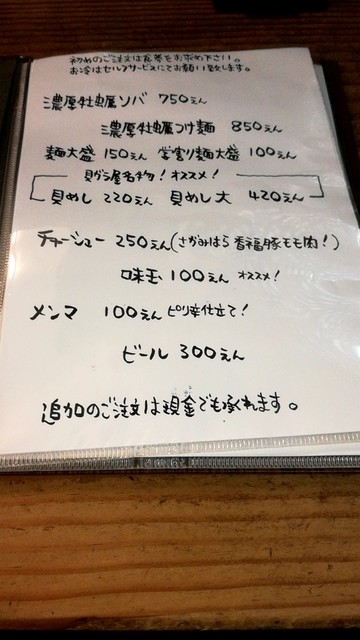 初めのご注文は食券をお求め下さい。
お冷はセルフサービスにてお願い致します。
濃厚牡蠣ソバ 750えん
濃厚牡蠣つけ麺 850えん
麺大盛 150えん 学割り麺大盛 100えん
貝がら屋名物!オススメ!
貝めし 220えん 貝めし大 420えん
チャーシュー 250えん(さがみはら香福豚もも肉!)
味玉 100えん オススメ!
メンマ 100えん ピリ辛仕立て!
ビール 300えん
追加のご注文は現金でも承れます。